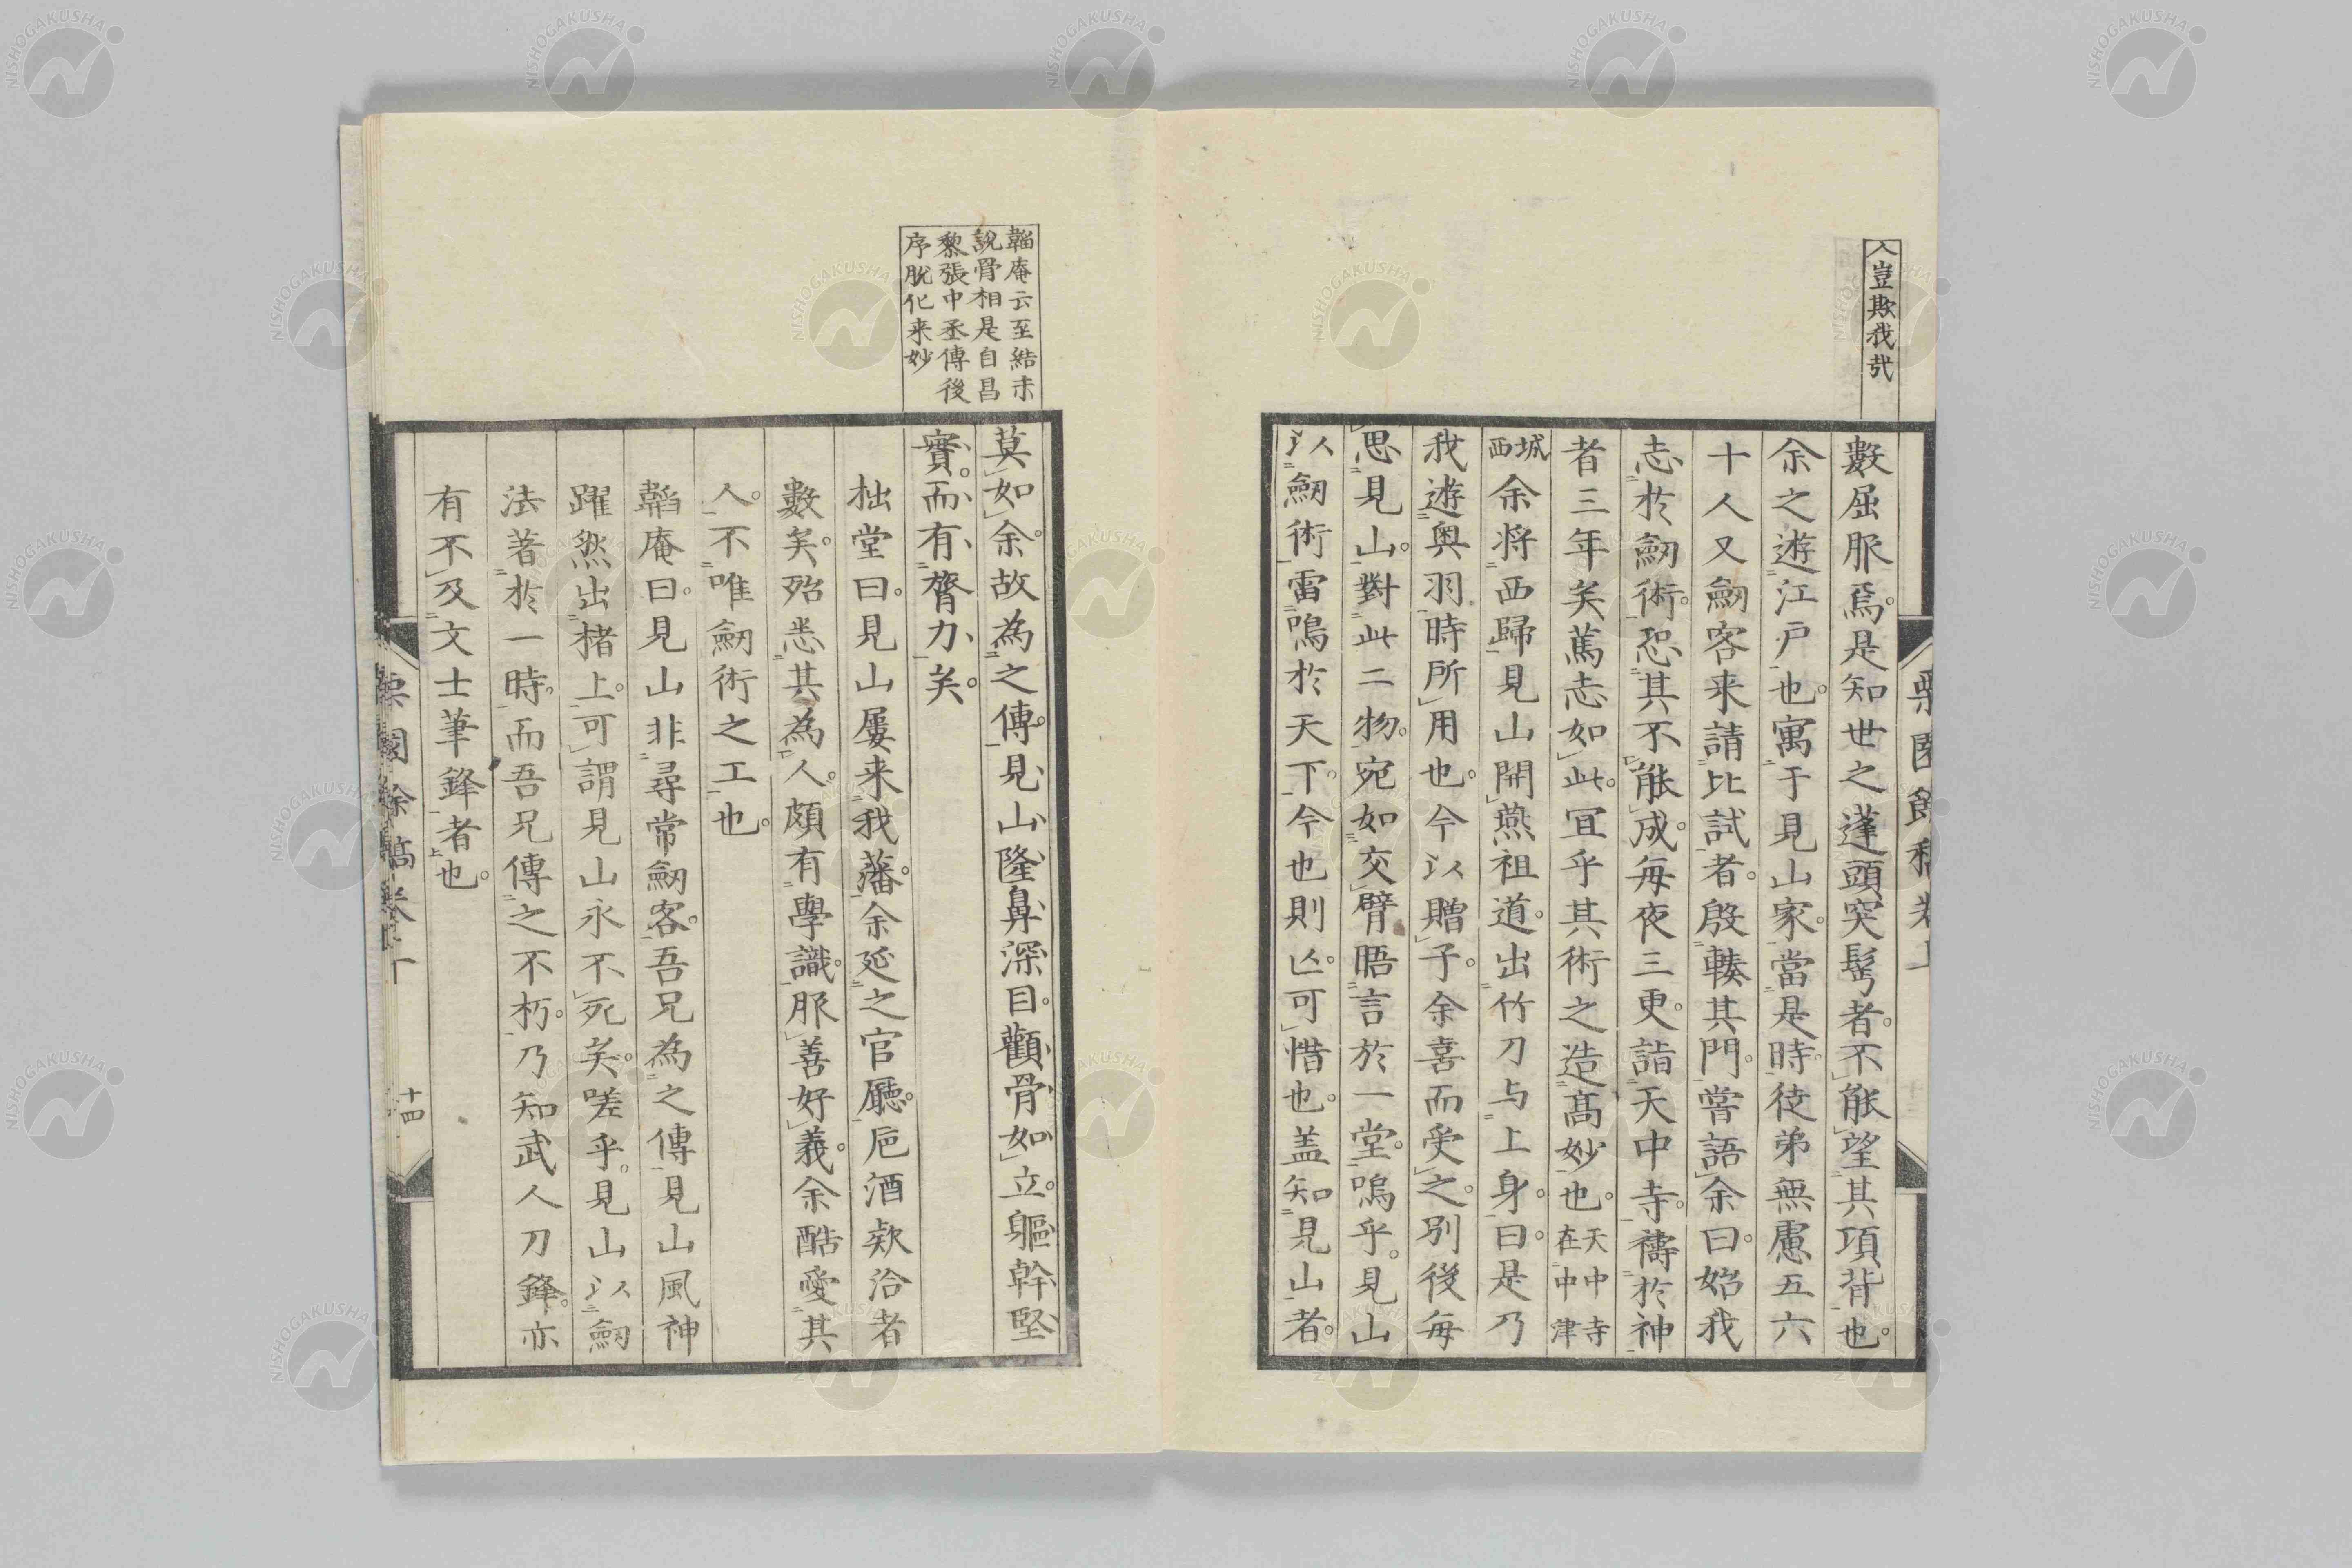 人豈欺我哉
數屈服焉。是知世之蓬頭突鬂者。不能望其項背也。
余之遊江戸也。寓于見山家。當是時。徒弟無慮五六
十人又劒客来請比試者。殷轃其門。嘗語余曰。始我
志於劒術。恐其不能成。毎夜三更。詣天中寺。禱於神
者三年矣篤志如此。宜乎其術之造髙妙也。天中寺在中津
城西余将西歸見山開燕祖道。出竹刀与上身。曰。是乃
我遊奥羽時所用也。今以贈子。余喜而受之。別後毎
思見山。對此二物。宛如交臂晤言於一堂。嗚乎。見山
以劒術雷鳴於天下。今也則亾。可惜也。盖知見山者。
莫如余。故為之傳。見山隆鼻深目。顴骨如立。軀幹堅
實。而有膂力矣。
拙堂曰。見山屢来我藩。余延之官廳。巵酒欵洽者
數矣。殆悉其為人。頗有學識。服善好義。余酷愛其
人。不唯劒術之工也。
韜庵曰。見山非尋常劒客。吾兄為之傳見山風神
躍然出楮上。可謂見山永不死矣。嗟乎。見山以劒
法著於一時。而吾兄傳之不朽。乃知武人刀鋒。亦
有不及文士筆鋒者也。
韜庵云至結末
説骨相是自昌
黎張中丞傳後
序脱化来妙
十四